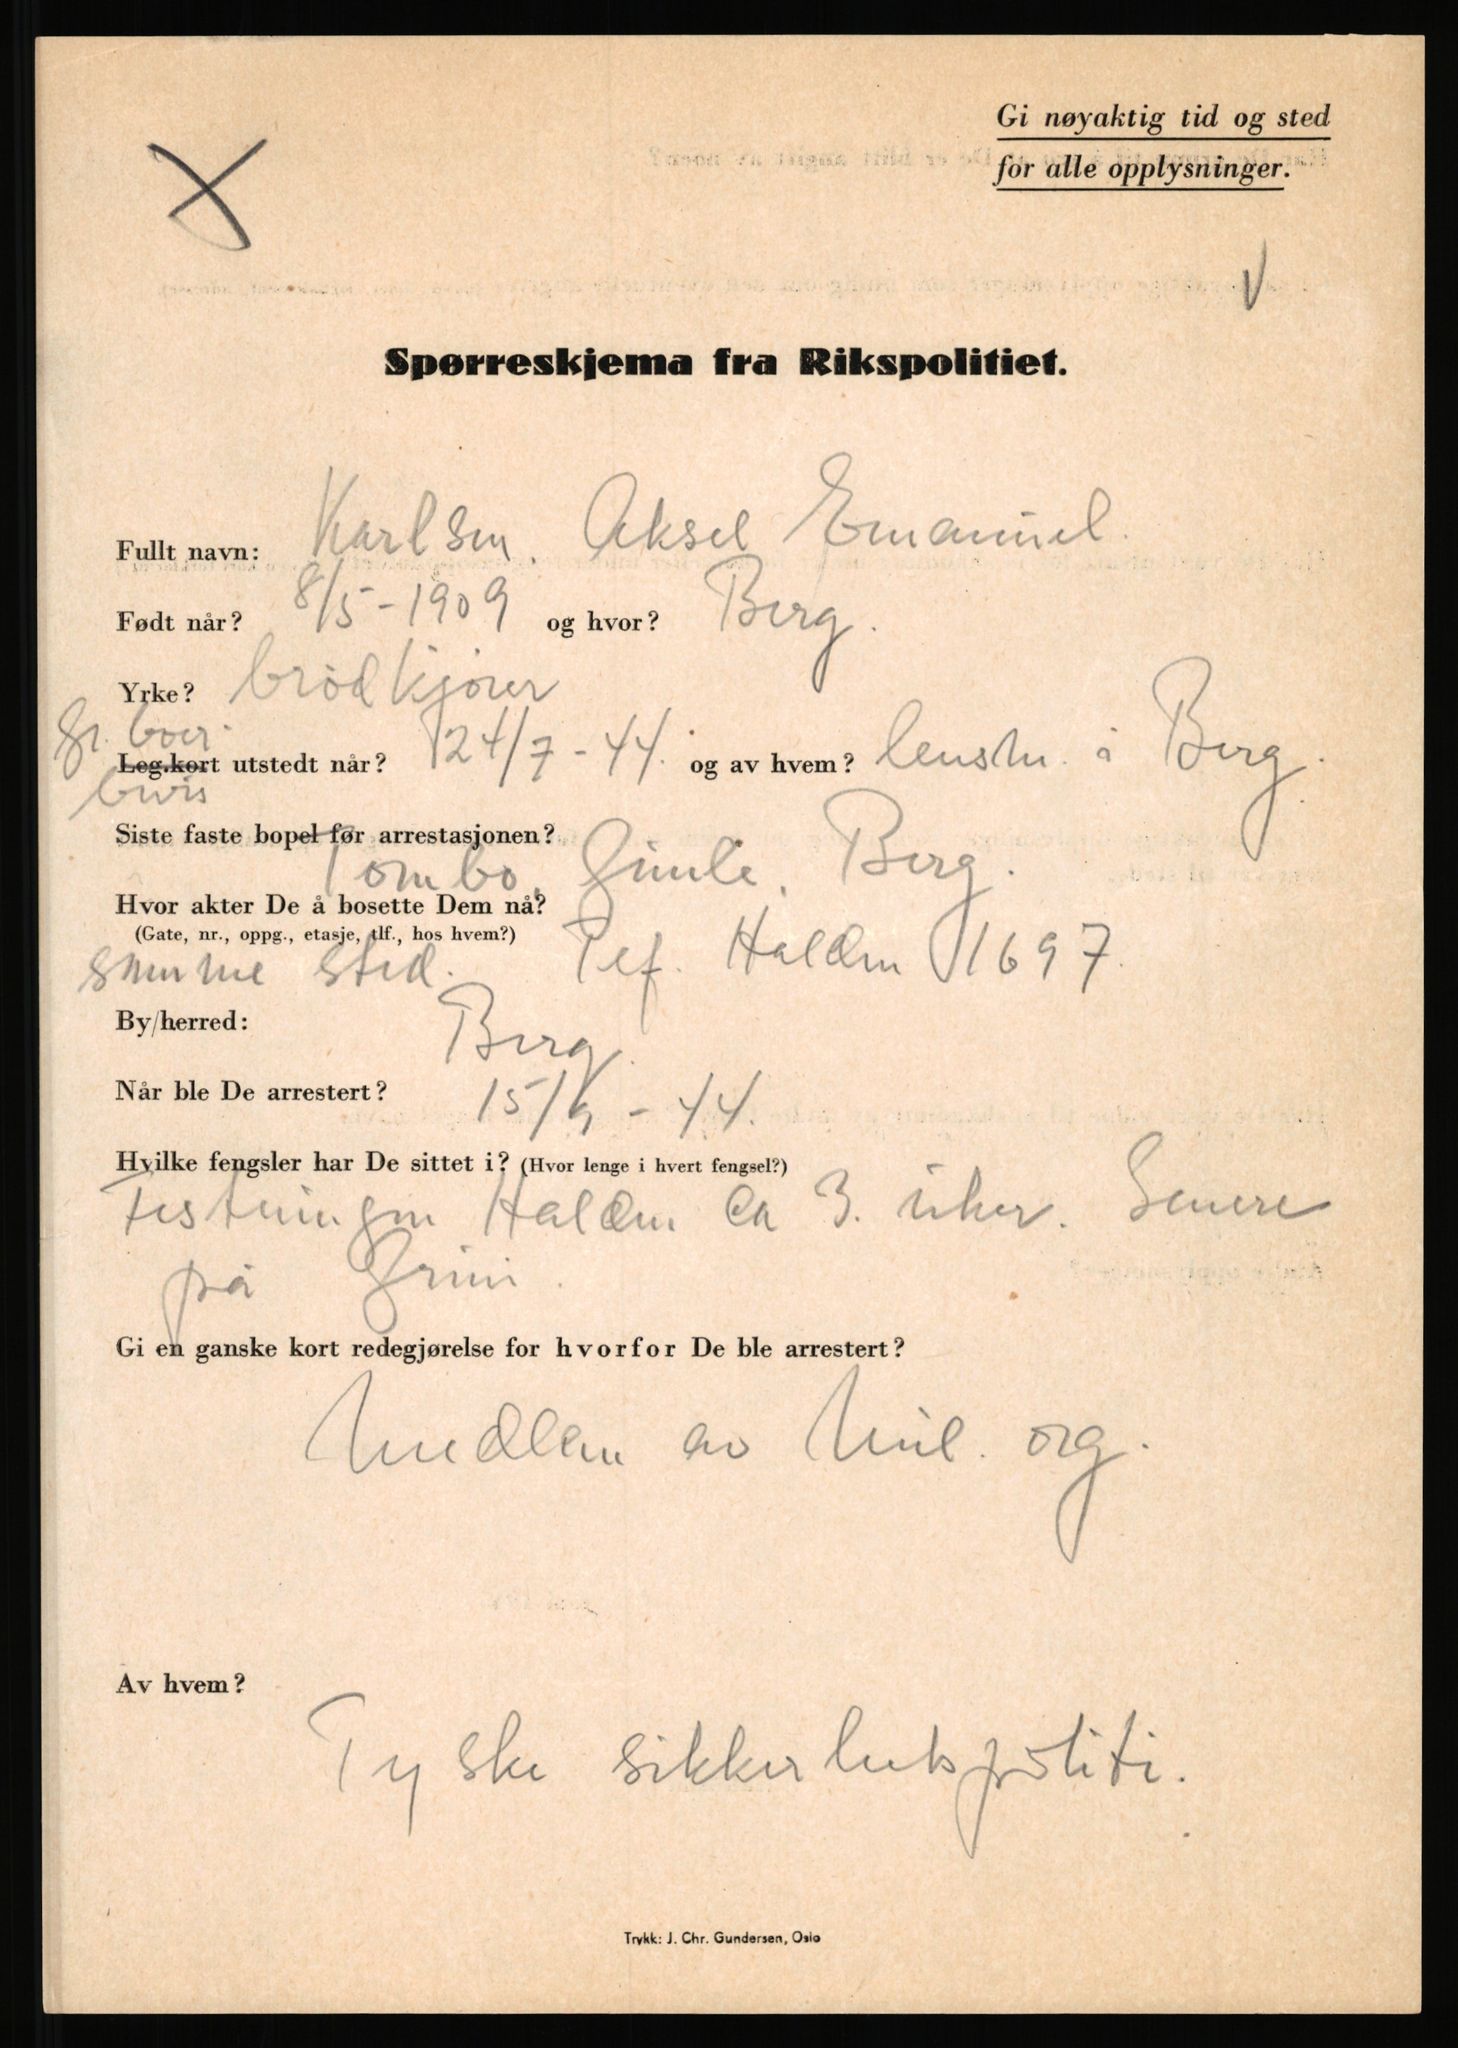 Gi nøyaktig tid og sted
for alle opplysninger.
Spørreskjema fra Rikspolitiet.
Fullt navn: Karlsen, Aksel Emanuel.
Født når? 8/5-1909 og hvor? Berg.
Yrke? brødkjører
gr. boer
Leg.kort utstedt når? 24/7-44. og av hvem? lensm. i Berg.
bevis
Siste faste bopel før arrestasjonen?
Tombo, Gimle, Berg.
Hvor akter De å bosette Dem nå?
(Gate, nr., oppg., etasje, tlf., hos hvem?)
samme sted. Telf. Halden 1697.
By/herred: Berg.
Når ble De arrestert? 15/9-44.
Hvilke fengsler har De sittet i? (Hvor lenge i hvert fengsel?)
Festningen Halden ca 3. uker. Senere
på Grini.
Gi en ganske kort redegjørelse for hvorfor De ble arrestert?
Medlem av Mil. org.
Av hvem?
Tyske sikkerhetspoliti.
Trykk: J. Chr. Gundersen, Oslo